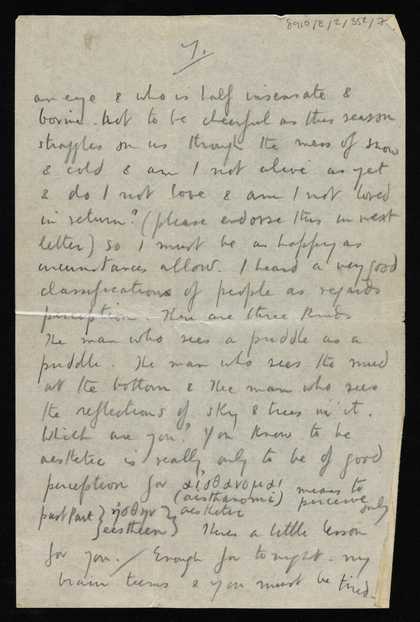 8910/E/2/352/7
7.
an eye & who is half insensate &
bovine. Not to be cheerful as this season
straggles on us through the mess of snow
& cold & am I not alive as yet
& do I not love & am I not loved
in return? (please endorse this in next
letter) So I must be as happy as
circumstances allow. I heard a very good
classifications of people as regards
perception. There are three kinds
The man who sees a puddle as a
puddle. The man who sees the mud
at the bottom & the man who sees
the reflections of sky & trees in it.
Which are you? You know to be
aesthetic is really only to be of good
perception for αισθανομαι means to
(aesthanomi) perceive only
past Part } ησθην } aesthetic
eestheen }
Theres a little lesson
for you. / Enough for tonight. my
brain teems & you must be tired.